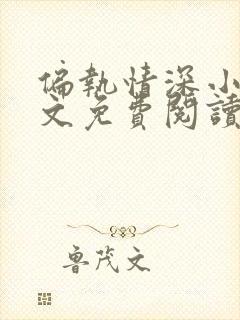 偏執情深小
文免費閱讀
魯茂文